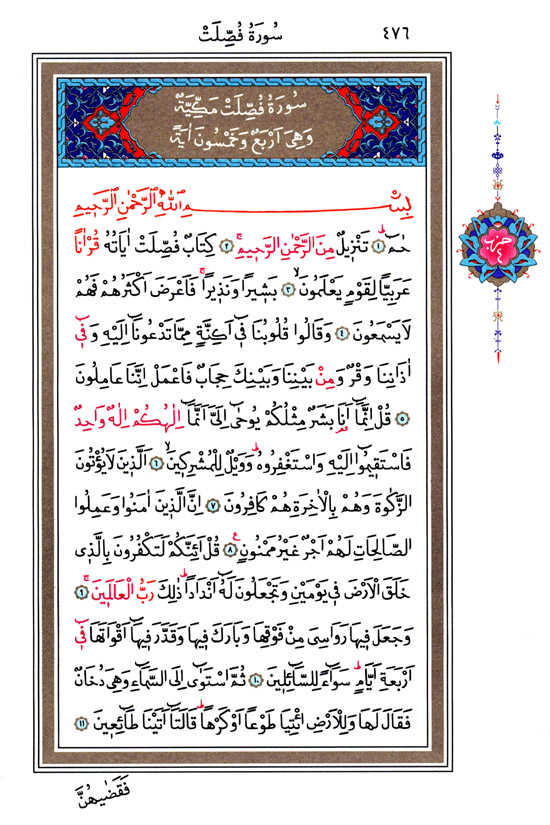 ٤٧٦
سُورَةُ فُصِّلَتْ
سُورَةُ فُصِّلَتْ مَكِّيَّةٌ
وَهِيَ اَرْبَعٌ وَخَمْسُونَ اٰيَةً
بِسْمِ اللّٰهِ الرَّحْمٰنِ الرَّحٖيمِ
حٰمٓ ﴿١﴾ تَنْزٖيلٌ مِنَ الرَّحْمٰنِ الرَّحٖيمِ ﴿٢﴾ كِتَابٌ فُصِّلَتْ اٰيَاتُهُ قُرْاٰناً
عَرَبِياًّ لِقَوْمٍ يَعْلَمُونَ ﴿٣﴾ بَشٖيراً وَنَذٖيراً فَاَعْرَضَ اَكْثَرُهُمْ فَهُمْ
لَا يَسْمَعُونَ ﴿٤﴾ وَقَالُوا قُلُوبُنَا فٖٓي اَكِنَّةٍ مِمَّا تَدْعُونَٓا اِلَيْهِ وَفٖٓي
اٰذَانِنَا وَقْرٌ وَمِنْ بَيْنِنَا وَبَيْنِكَ حِجَابٌ فَاعْمَلْ اِنَّنَا عَامِلُونَ
﴿٥﴾ قُلْ اِنَّمَٓا اَنَا۬ بَشَرٌ مِثْلُكُمْ يُوحٰٓى اِلَيَّ اَنَّمَٓا اِلٰهُكُمْ اِلٰهٌ وَاحِدٌ
فَاسْتَقٖيمُٓوا اِلَيْهِ وَاسْتَغْفِرُوهُ وَوَيْلٌ لِلْمُشْرِكٖينَ ﴿٦﴾ اَلَّذٖينَ لَا يُؤْتُونَ
الزَّكٰوةَ وَهُمْ بِالْاٰخِرَةِ هُمْ كَافِرُونَ ﴿٧﴾ اِنَّ الَّذٖينَ اٰمَنُوا وَعَمِلُوا
الصَّالِحَاتِ لَهُمْ اَجْرٌ غَيْرُ مَمْنُونٍ ﴿٨﴾ قُلْ اَئِنَّكُمْ لَتَكْفُرُونَ بِالَّذٖي
خَلَقَ الْاَرْضَ فٖي يَوْمَيْنِ وَتَجْعَلُونَ لَهُٓ اَنْدَاداً ذٰلِكَ رَبُّ الْعَالَمٖينَ ﴿٩﴾
وَجَعَلَ فٖيهَا رَوَاسِيَ مِنْ فَوْقِهَا وَبَارَكَ فٖيهَا وَقَدَّرَ فٖيهَٓا اَقْوَاتَهَا فٖٓي
اَرْبَعَةِ اَيَّامٍ سَوَٓاءً لِلسَّٓائِلٖينَ ﴿١٠﴾ ثُمَّ اسْتَوٰٓى اِلَى السَّمَٓاءِ وَهِيَ دُخَانٌ
فَقَالَ لَهَا وَلِلْاَرْضِ ائْتِيَا طَوْعاً اَوْ كَرْهاً قَالَتَٓا اَتَيْنَا طَٓائِعٖينَ ﴿١١﴾
فَقَضٰيهُنَّ
حزب
٤